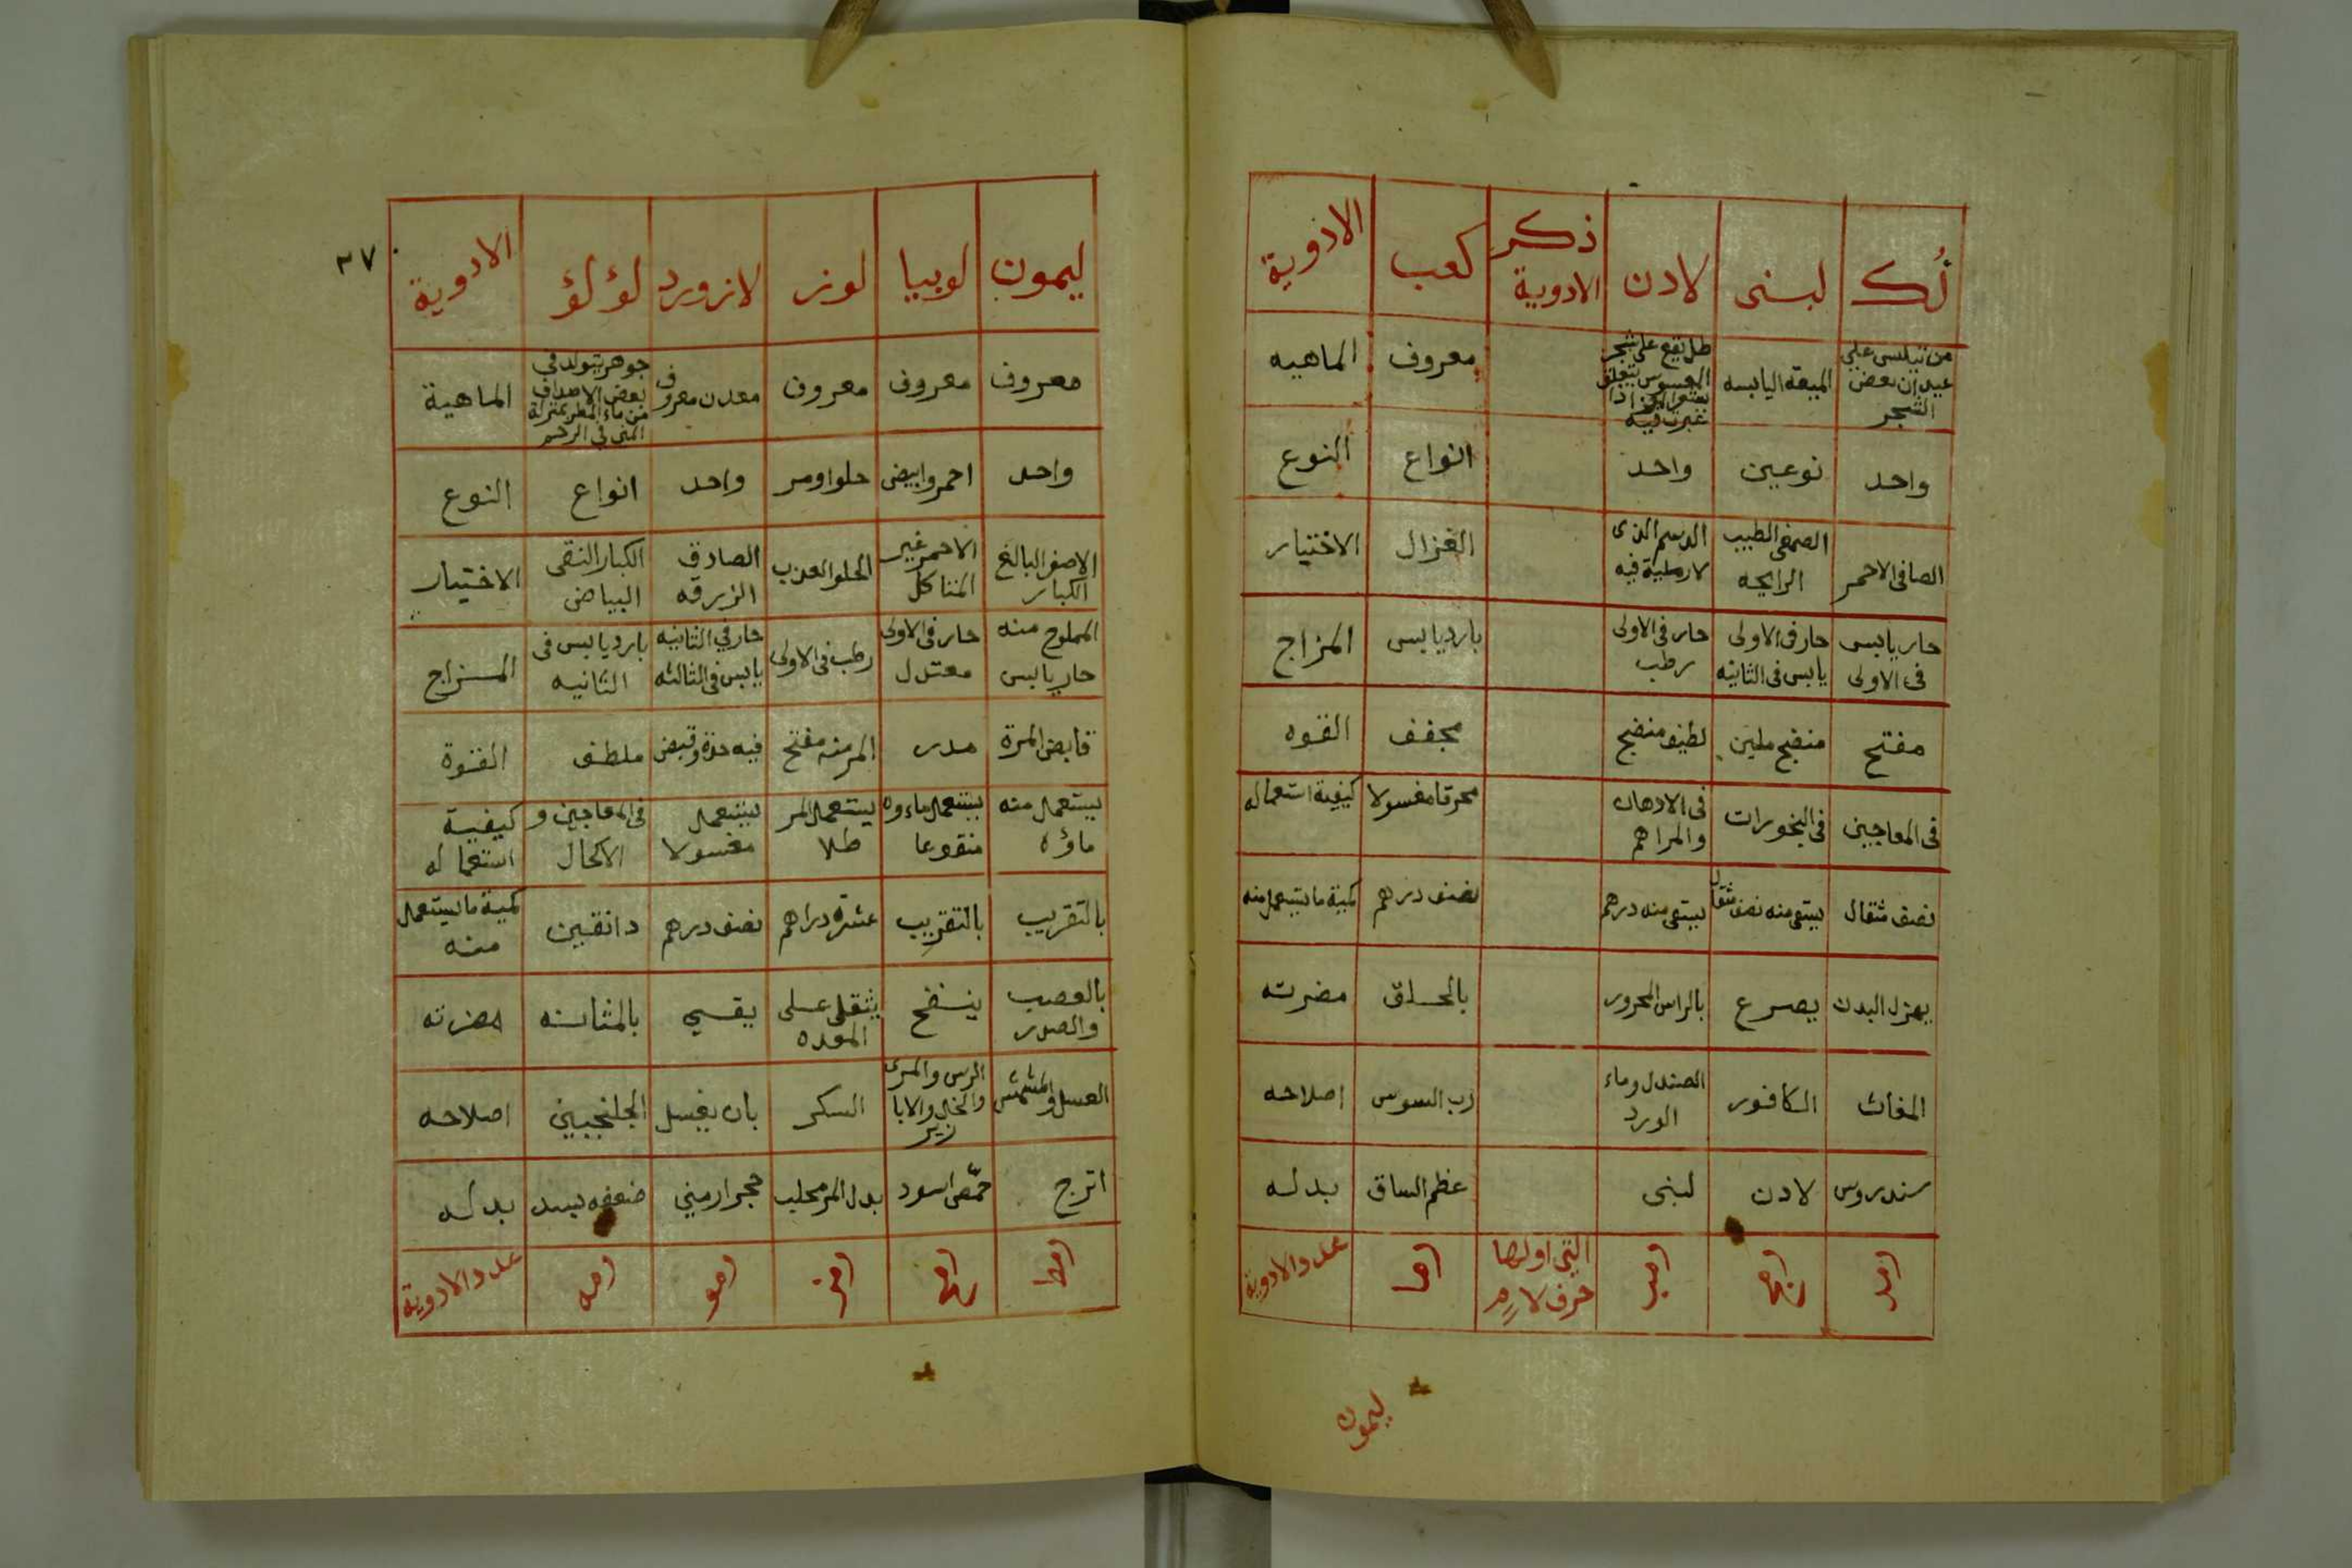 لُك لبنى لادن ذكر الادوية كعب الادوية
من تبلسى على عيدان بعض الشجر المیعة اليابسه طل يقع على شجر معروف الماهيه
واحد نوعين واحد انواع النوع
الصافى الاحمر الصمغى الطيب الرايحه الدسم الذى لا رملية فيه الغزال الاختيار
حار يابس فى الاولى حار فى الاولى يابس فى الثانيه حار فى الاولى رطب بارد يابس المزاج
مفتح منضج ملين لطيف منضج مجفف القوه
فى المعاجين فى البخورات فى الادهان والمراهم محرقا مغسولا كيفية استعماله
نصف مثقال يستعمل منه نصف مثقال درهم نصف درهم كمية ما يستعمل منه
يهزل البدن يصرع بالراس المحرور بالحلق مضرته
المغاث الكافور الصندل وماء الورد رب السوس اصلاحه
سندروس لادن لبنى عظم الساق بدله
التى اولها حرف لام عدد الادوية
ليمون
٣٧
ليمون لوبيا لوز لازورد لؤلؤ الادوية
معروف معروف معروف معدن معروف جوهر يتولد فى بعض الاصداف من ماء المطر بمنزلة المنى فى الرحم الماهية
واحد احمر وابيض حلو او مر واحد انواع النوع
الاصفر البالغ الكبار الاحمر غير المتاكل الحلو العذب الصادق الزرقه الكبار النقى البياض الاختيار
المملوح منه حار يابس حار فى الاولى معتدل رطب فى الاولى حار فى الثانيه يابس فى الثالثه بارد يابس فى الثانيه المزاج
قابض المرة مدر المر منه مفتح فيه حدة وقبض ملطف القوة
يستعمل منه ماؤه يستعمل ماءوه منقوعا يستعمل المر طلا يستعمل مغسولا فى المعاجين و الاكحال كيفية استعماله
بالتقريب بالتقريب عشرة دراهم نصف درهم دانقين كمية ما يستعمل منه
بالعصب والصدر ينفخ يثقل على المعده يقىء بالمثانه مضرته
العسل والمشمش والمرى والخل والابا زير السكر بان يغسل الجلنجبين اصلاحه
اترج حمّص اسود بدل المر محلب حجر ارمنى ضعفه بسد بدله
عدد الادوية